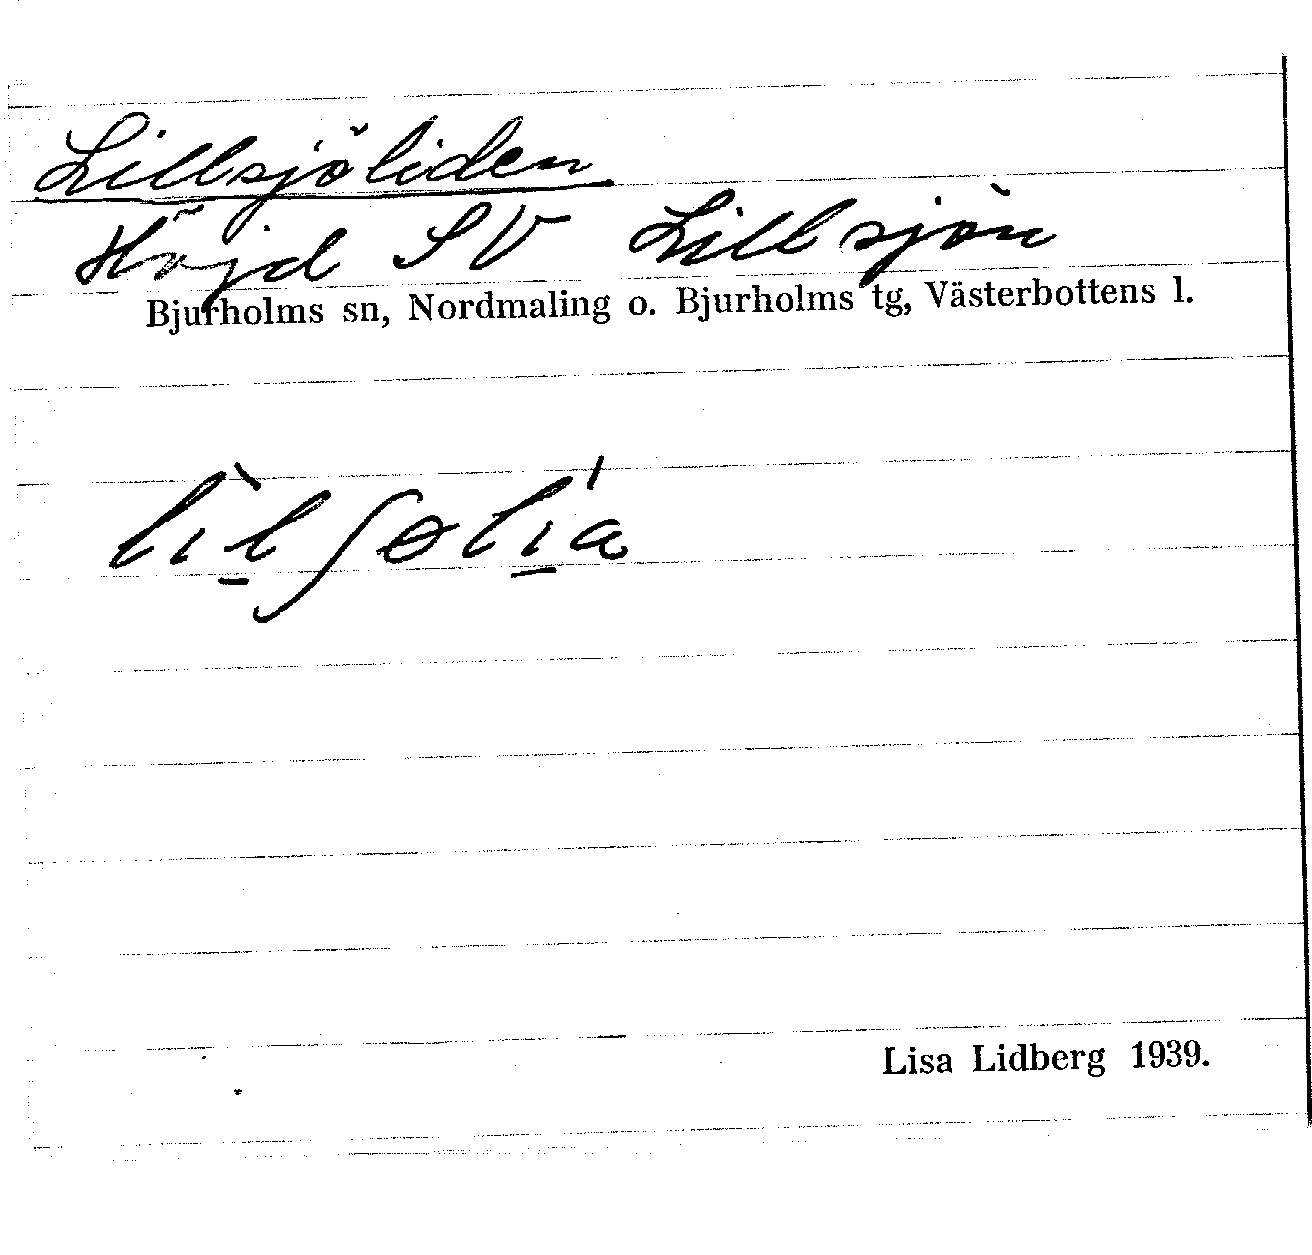 Lillsjöliden
Höjd SV Lillsjön
Bjurholms sn, Nordmaling o. Bjurholms tg, Västerbottens l.
lìl̠ʃølí̠a
Lisa Lidberg 1939.